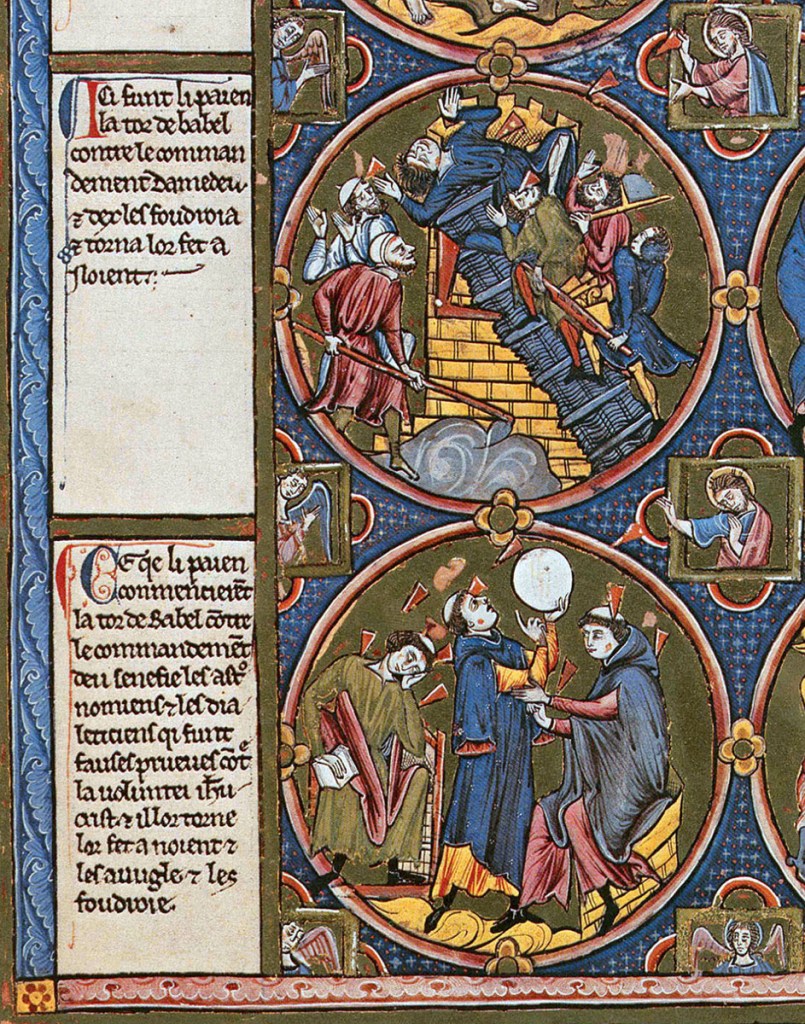 Ici funt li paien
la tor de babel
contre le comman
dement Damedeu
⁊ dex les foudroia
⁊ torna lor fet a
noient:
Ce qe li paien
commencierēt
la tor de Babel cōtre
le commandemēt
deu senefie les ast°
nomiens ⁊ les dia
leticiens qi funt
fauses prueves cōt
la volunteı ihu
crist ⁊ il lor torne
lor fet a noient ⁊
les avugle ⁊ les
foudroie.